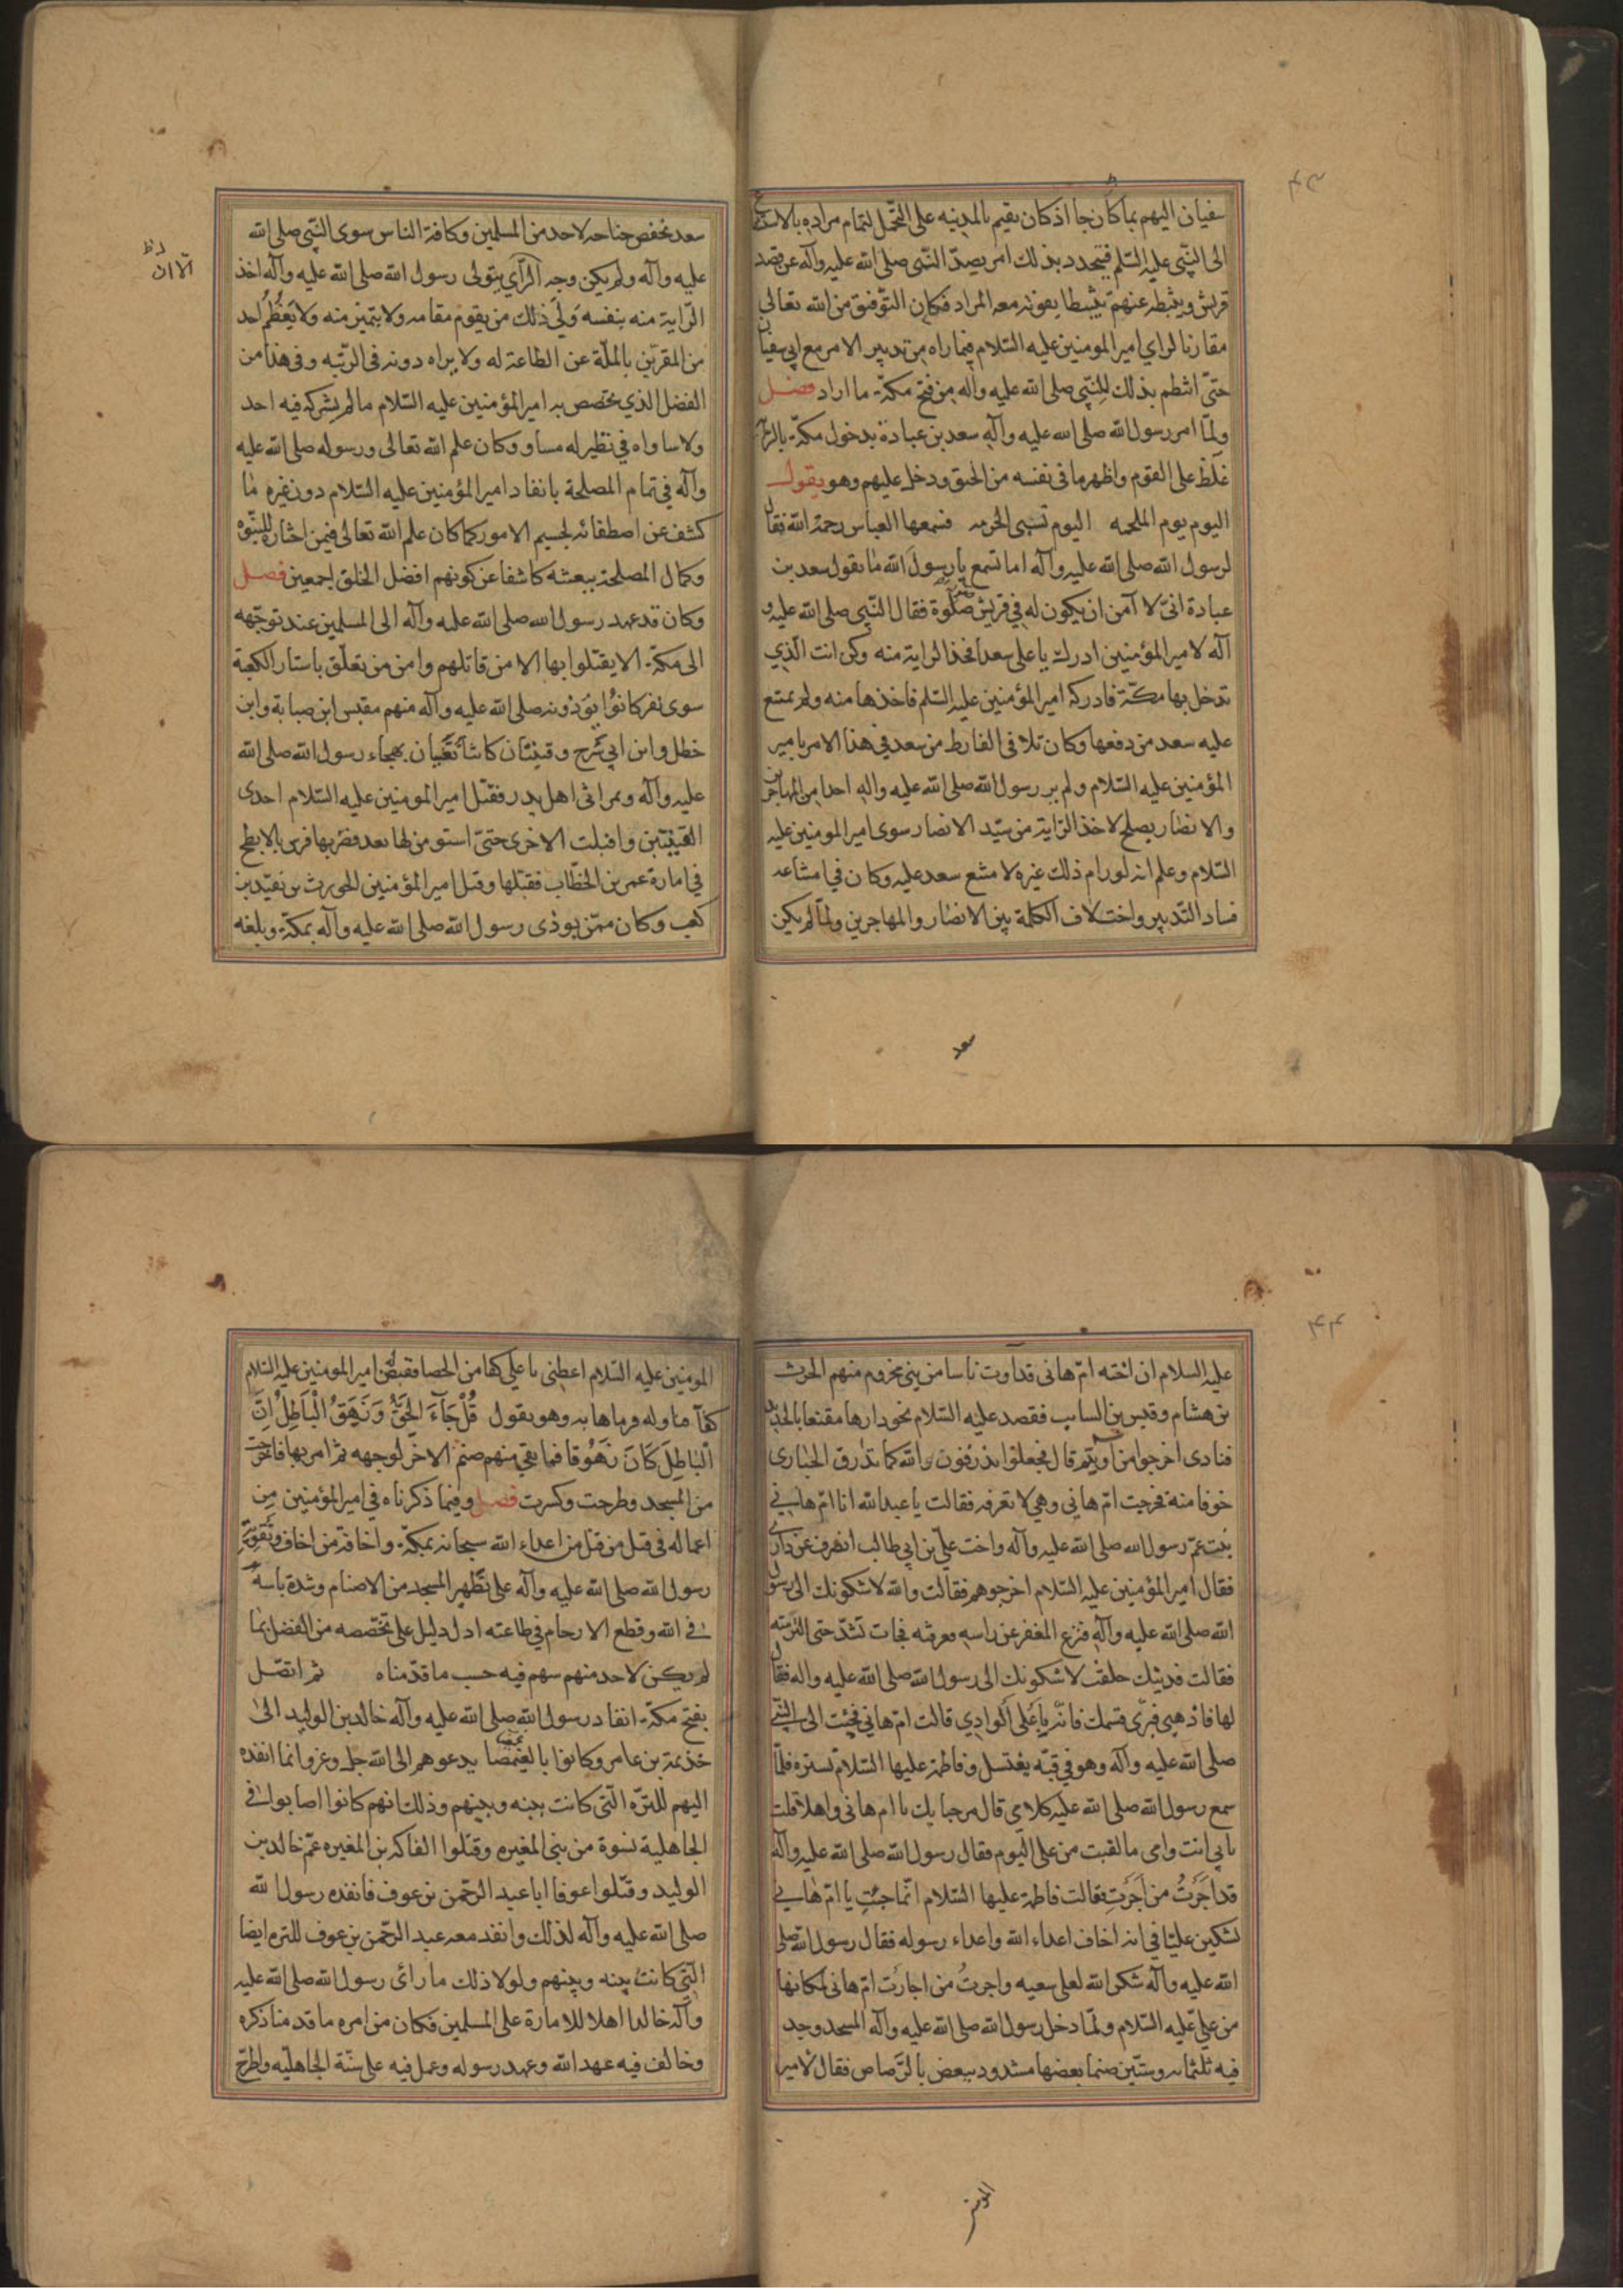 سفيان اليهم بما كان جا اذ كان يقيم بالمدينه على التحمل لتمام مراده بالاستشفاع
الى النّبى عليه السّلم فيتجدد بذلك امر يصدّ النّبى صلى الله عليه وآله عن قصد
قريش ويثبطه عنهم تثبيطا يفوته معه المراد فكان التوفيق من الله تعالى
مقارنا لراي امير المومنين عليه السّلام فيما راه من تدبير الامر مع ابى سفيان
حتىّ انتظم بذلك للنبّى صلى الله عليه وآله من فتح مكّة ما اراد فصل
ولمّا امر رسول الله صلى الله عليه وآله سعد بن عبادة بدخول مكة بالراية
غلظ على القوم واظهر ما فى نفسه من الحنق ودخل عليهم وهو يقول
اليوم يوم الملحمه اليوم تسبى الحرمه فسمعها العباس رحمة الله فقال
لرسول الله صلى الله عليه وآله اما تسمع يا رسول الله ما يقول سعد بن
عبادة انىّ لا آمن ان يكون له فى قريش صلوة فقال النّبى صلى الله عليه و
آله لامير المؤمنين ادرك يا على سعدا فخذ الراية منه وكن انت الذي
تدخل بها مكّة فادركه امير المؤمنين عليه السّلم فاخذها منه ولم يمتنع
عليه سعد من دفعها وكان تلافى الفارط من سعد في هذا الامر بامير
المؤمنين عليه السّلام ولم ير رسول الله صلى الله عليه واله احدا من المهاجرين
والانصار يصلح لاخذ الرّاية من سيّد الانصار سوى امير المومنين عليه
السّلام وعلم انه لو رام ذلك غيره لامتنع سعد عليه وكان في امتناعه
فساد التّدبير واختلاف الكلمة بين الانصار والمهاجرين ولمّا لم يكن
سعد
سعد يخفض جناحه لاحد من المسلمين وكافة الناس سوى النّبى صلى الله
عليه وآله ولم يكن وجه الرّأي يتولى رسول الله صلى الله عليه وآله اخذ
الرّاية منه بنفسه ولّى ذلك من يقوم مقامه ولا يتميز منه ولا يعظم احد
من المقرّين بالملّة عن الطاعة له ولا يراه دونه فى الرّتبه وفى هذا من
الفضل الذي تخصص به امير المؤمنين عليه السّلام ما لم يشركه فيه احد
ولا ساواه في نظير له مساو وكان علم الله تعالى ورسوله صلى الله عليه
وآله في تمام المصلحة بانفاد امير المؤمنين عليه السّلام دون غيره ما
كشف عن اصطفائه لجسيم الامور كما كان علم الله تعالى فيمن اختاره للنبّوه
وكمال المصلحة ببعثه كاشفا عن كونهم افضل الخلق اجمعين فصل
وكان قد عهد رسول الله صلى الله عليه وآله الى المسلمين عند توجّهه
الى مكّة الا يقتلوا بها الا من قاتلهم وامن من تعلّق باستار الكعبة
سوى نفر كانوا يؤذونه صلى الله عليه وآله منهم مقبس ابن صبابة وابن
خطل وابن ابى سرح وقينتان كانتا تغنيان بهجاء رسول الله صلى الله
عليه وآله وبمراثى اهل بدر فقتل امير المومنين عليه السّلام احدى
القينيتين وافبلت الاخرى حتىّ استومن لها بعد فضربها فرس بالابطح
في امارة عمر بن الخطّاب فقتلها وقتل امير المؤمنين الحويرث بن نقيد بن
كعب وكان ممّن يوذى رسول الله صلى الله عليه وآله بمكّة وبلغه
عليه السلام ان اخته امّ هانى قد اوت ناسا من بنى مخزوم منهم الحرث
بن هشام وقيس بن السايب فقصد عليه السّلام نحو دارها مقنعا بالحديد
فنادى اخرجوا من آويتم قال فجعلوا يذرقون والله كما تذرق الحبارى
خوفا منه فخرجت امّ هانى وهي لا تعرفه فقالت يا عبد الله انا امّ هانى
بنت عمّ رسول الله صلى الله عليه وآله واخت علّى بن ابى طالب انصرف عن دارى
فقال امير المؤمنين عليه السّلام اخرجوهم فقالت والله لاشكونك الى رسول
الله صلى الله عليه وآله فنزع المغفر عن راسه فعرفته فجات تشدّ حتى التزمته
فقالت فديتك حلفت لاشكونك الى رسول الله صلى الله عليه واله فقال
لها فاذهبى فبرّى قسمك فانّه باعلى الوادي قالت امّ هانى فجئت الى النّبى
صلى الله عليه وآله وهو في قبّه يغتسل وفاطمة عليها السّلام تستره فلمّا
سمع رسول الله صلى الله عليه كلامى قال مرحبا بك يا ام هانى واهلا قلت
بابى انت وامى ما لقيت من على اليوم فقال رسول الله صلى الله عليه وآله
قد اجرت من اجرت فقالت فاطمة عليها السّلام انّما جئت يا امّ هانى
تشكين عليّا فى انه اخاف اعداء الله واعداء رسوله فقال رسول الله صلى
الله عليه وآله شكر الله لعلى سعيه واجرت من اجارت امّ هانى لمكانها
من علىّ عليه السّلام ولمّا دخل رسول الله صلى الله عليه وآله المسجد وجد
فيه ثلثمائه وستّين صنما بعضها مشدود ببعض بالرّصاص فقال لامير
المومنين عليه السّلام اعطنى يا على كفا من الحصا فقبض امير المومنين عليه السّلام
كفاّ فناوله فرماها به وهو يقول قُلْ جَآءَ الْحَقُّ وَزَهَقَ الْبَاطِلُ اِنَّ
الْبَاطِلَ كَانَ زَهُوقًا فما بقى منهم صنم الا خرّ لوجهه ثم امر بها فاخرجت
من المسجد وطرحت وكسرت فصل وفيما ذكرناه في امير المؤمنين من
اعماله فى قتل من قتل من اعداء الله سبحانه بمكّة واخافة من اخاف وتقويّة
رسول الله صلى الله عليه وآله على تطهير المسجد من الاصنام وشدة باسه
فى الله وقطع الارحام في طاعته ادل دليل على تخصّصه من الفضل بما
لم يكن لاحد منهم سهم فيه حسب ما قدّمناه ثم اتصّل
بفتح مكّة انفاد رسول الله صلى الله عليه وآله خالد بن الوليد الى
خذيمة بن عامر وكانوا بالغميصا يدعوهم الى الله جل وعز وانما انفده
اليهم للترّه الّتى كانت بينه وبينهم وذلك انهم كانوا اصابوا فى
الجاهلية نسوة من بنى المغيره وقتلوا الفاكه بن المغيره عمّ خالد بن
الوليد وقتلوا عوفا ابا عبد الرّحمن بن عوف فانفده رسول الله
صلى الله عليه وآله لذلك وانفد معه عبد الرّحمن بن عوف للترة ايضا
الّتى كانت بينه وبينهم ولولا ذلك ما رائ رسول الله صلى الله عليه
وآله خالدا اهلا للامارة على المسلمين فكان من امره ما قدمنا ذكره
وخالف فيه عهد الله وعهد رسوله وعمل فيه على سنّة الجاهليّه واطرح